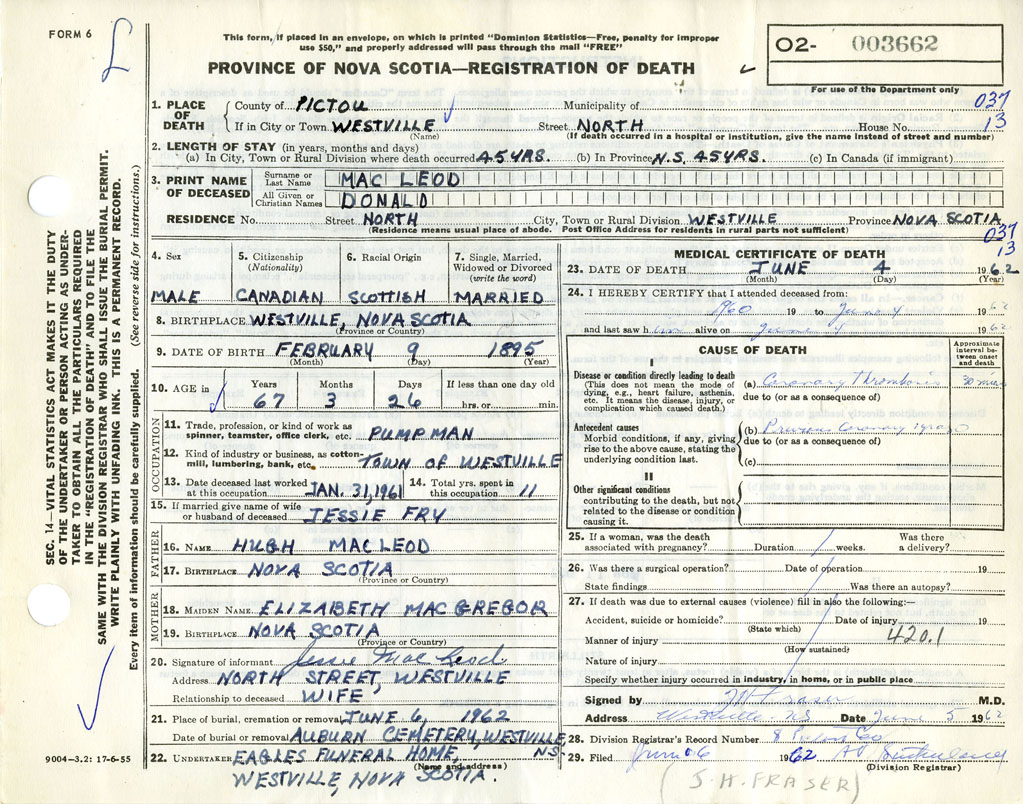 FORM 6
This form, if placed in an envelope, on which is printed "Dominion Statistics—Free, penalty for improper
use $50," and properly addressed will pass through the mail "FREE"
PROVINCE OF NOVA SCOTIA—REGISTRATION OF DEATH
O2- 003662
For use of the Department only
037
13
1. PLACE OF DEATH
County of PICTOU Municipality of
If in City or Town WESTVILLE Street NORTH House No.
(Name) (If death occurred in a hospital or institution, give the name instead of street and number)
2. LENGTH OF STAY (in years, months and days)
(a) In City, Town or Rural Division where death occurred 45 YRS. (b) In Province N.S. 45 YRS. (c) In Canada (if immigrant)
3. PRINT NAME OF DECEASED
Surname or Last Name MAC LEOD
All Given or Christian Names DONALD
RESIDENCE No. Street NORTH City, Town or Rural Division WESTVILLE Province NOVA SCOTIA
(Residence means usual place of abode. Post Office Address for residents in rural parts not sufficient)
037
13
4. Sex 5. Citizenship (Nationality) 6. Racial Origin 7. Single, Married, Widowed or Divorced (write the word)
MALE CANADIAN SCOTTISH MARRIED
8. BIRTHPLACE WESTVILLE, NOVA SCOTIA
(Province or Country)
9. DATE OF BIRTH FEBRUARY 9 1895
(Month) (Day) (Year)
10. AGE in Years Months Days If less than one day old
67 3 26 hrs. or min.
OCCUPATION
11. Trade, profession, or kind of work as
spinner, teamster, office clerk, etc. PUMPMAN
12. Kind of industry or business, as cotton-
mill, lumbering, bank, etc. TOWN OF WESTVILLE
13. Date deceased last worked at this occupation JAN. 31, 1961 14. Total yrs. spent in this occupation 11
15. If married give name of wife
or husband of deceased JESSIE FRY
FATHER
16. NAME HUGH MAC LEOD
17. BIRTHPLACE NOVA SCOTIA
(Province or Country)
MOTHER
18. MAIDEN NAME ELIZABETH MAC GREGOR
19. BIRTHPLACE NOVA SCOTIA
(Province or Country)
20. Signature of informant Jessie Mac Leod
Address NORTH STREET, WESTVILLE
Relationship to deceased WIFE
21. Place of burial, cremation or removal JUNE 6, 1962
Date of burial or removal AUBURN CEMETERY, WESTVILLE N.S.
22. UNDERTAKER EAGLES FUNERAL HOME,
(Name and address)
WESTVILLE, NOVA SCOTIA.
MEDICAL CERTIFICATE OF DEATH
23. DATE OF DEATH JUNE 4 1962
(Month) (Day) (Year)
24. I HEREBY CERTIFY that I attended deceased from:
1960 19 to June 4 1962
and last saw him alive on June 4 1962
CAUSE OF DEATH
Approximate interval between onset and death
I
Disease or condition directly leading to death
(This does not mean the mode of
dying, e.g., heart failure, asthenia,
etc. It means the disease, injury, or
complication which caused death.)
(a) Coronary Thrombosis 30 mins
due to (or as a consequence of)
Antecedent causes
Morbid conditions, if any, giving
rise to the above cause, stating the
underlying condition last.
(b) Previous Coronary 1 yr ago
due to (or as a consequence of)
(c)
II
Other significant conditions
contributing to the death, but not
related to the disease or condition
causing it.
25. If a woman, was the death associated with pregnancy? Duration weeks. Was there a delivery?
26. Was there a surgical operation? Date of operation 19
State findings Was there an autopsy?
27. If death was due to external causes (violence) fill in also the following:—
Accident, suicide or homicide? Date of injury 19
(State which)
Manner of injury 420.1
(How sustained)
Nature of injury
Specify whether injury occurred in industry, in home, or in public place
Signed by JH Fraser M.D.
Address Westville NS Date June 5 1962
28. Division Registrar's Record Number 8
29. Filed June 6 1962
(Division Registrar)
(J. H. FRASER)
SEC. 14—VITAL STATISTICS ACT MAKES IT THE DUTY
OF THE UNDERTAKER OR PERSON ACTING AS UNDER-
TAKER TO OBTAIN ALL THE PARTICULARS REQUIRED
IN THE "REGISTRATION OF DEATH" AND TO FILE THE
SAME WITH THE DIVISION REGISTRAR WHO SHALL ISSUE THE BURIAL PERMIT.
WRITE PLAINLY WITH UNFADING INK. THIS IS A PERMANENT RECORD.
Every item of information should be carefully supplied. (See reverse side for instructions.)
9004—3.2: 17-6-55